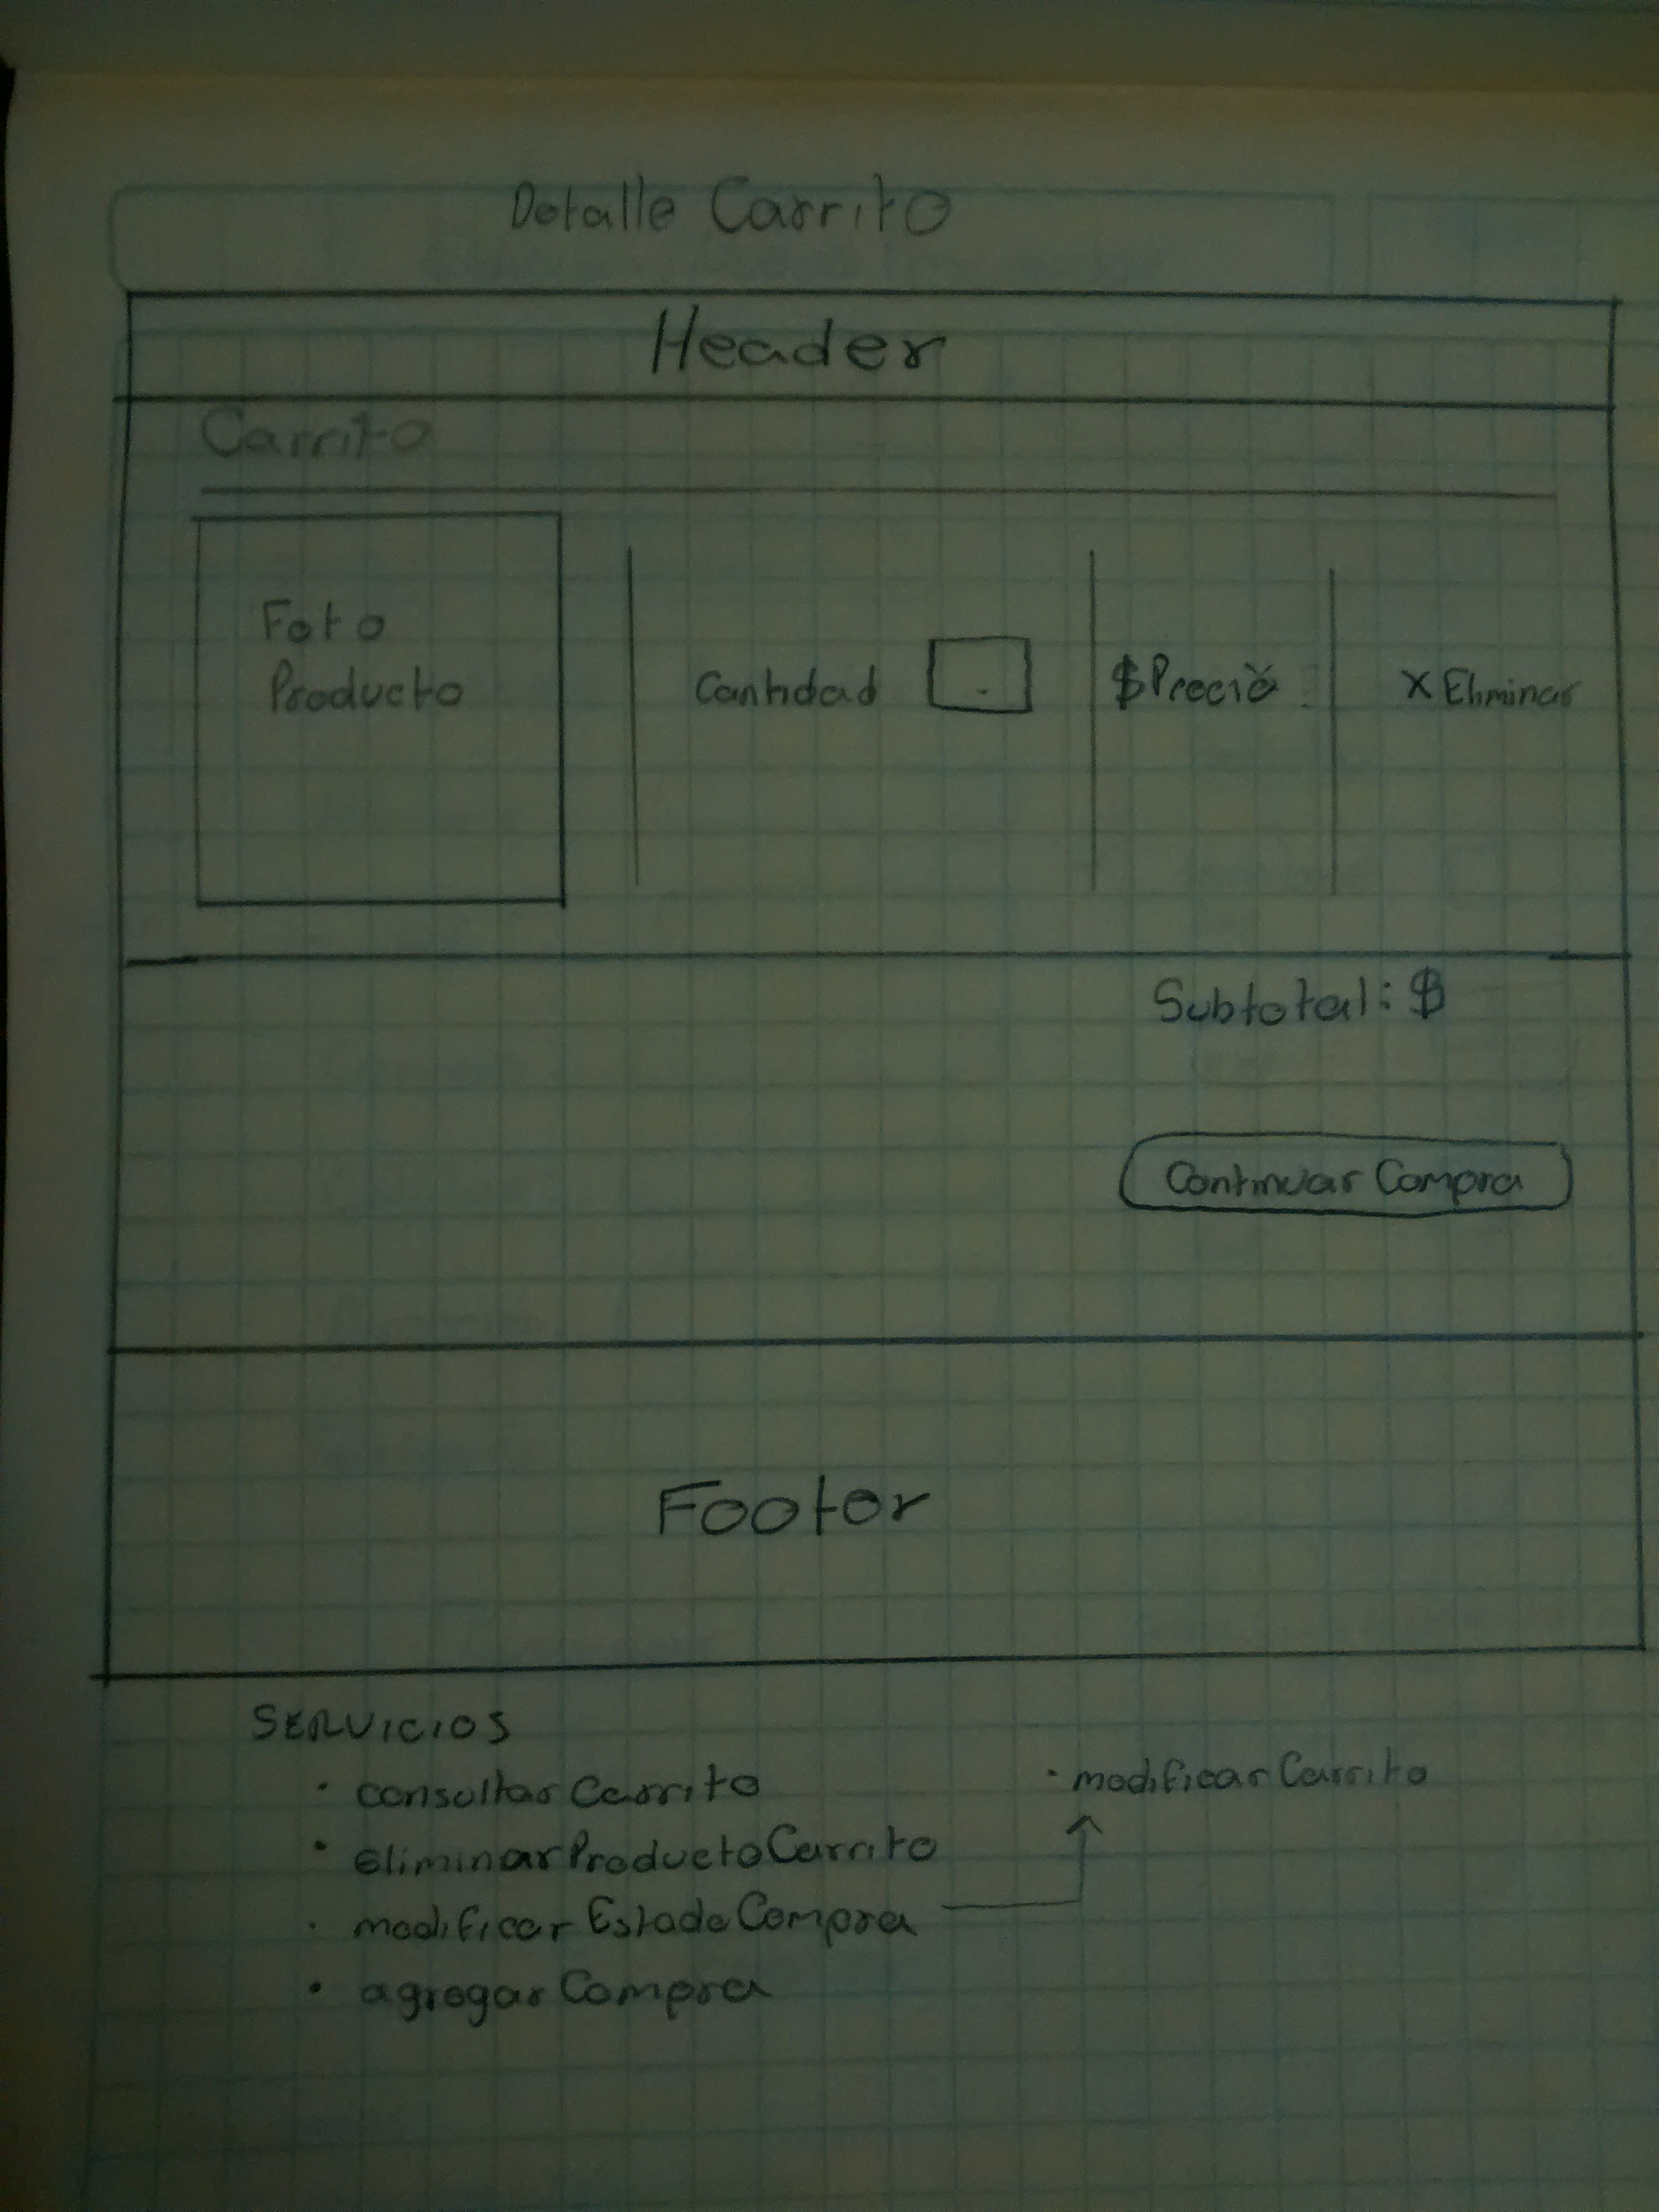 Detalle Carrito
Header
Carrito
Foto
Producto
Cantidad
$Precio
X Eliminar
Subtotal: $
Continuar Compra
Footer
SERVICIOS
• consultar Carrito
• eliminarProductoCarrito
• modificar Estado Compra
• agregar Compra
• modificar Carrito